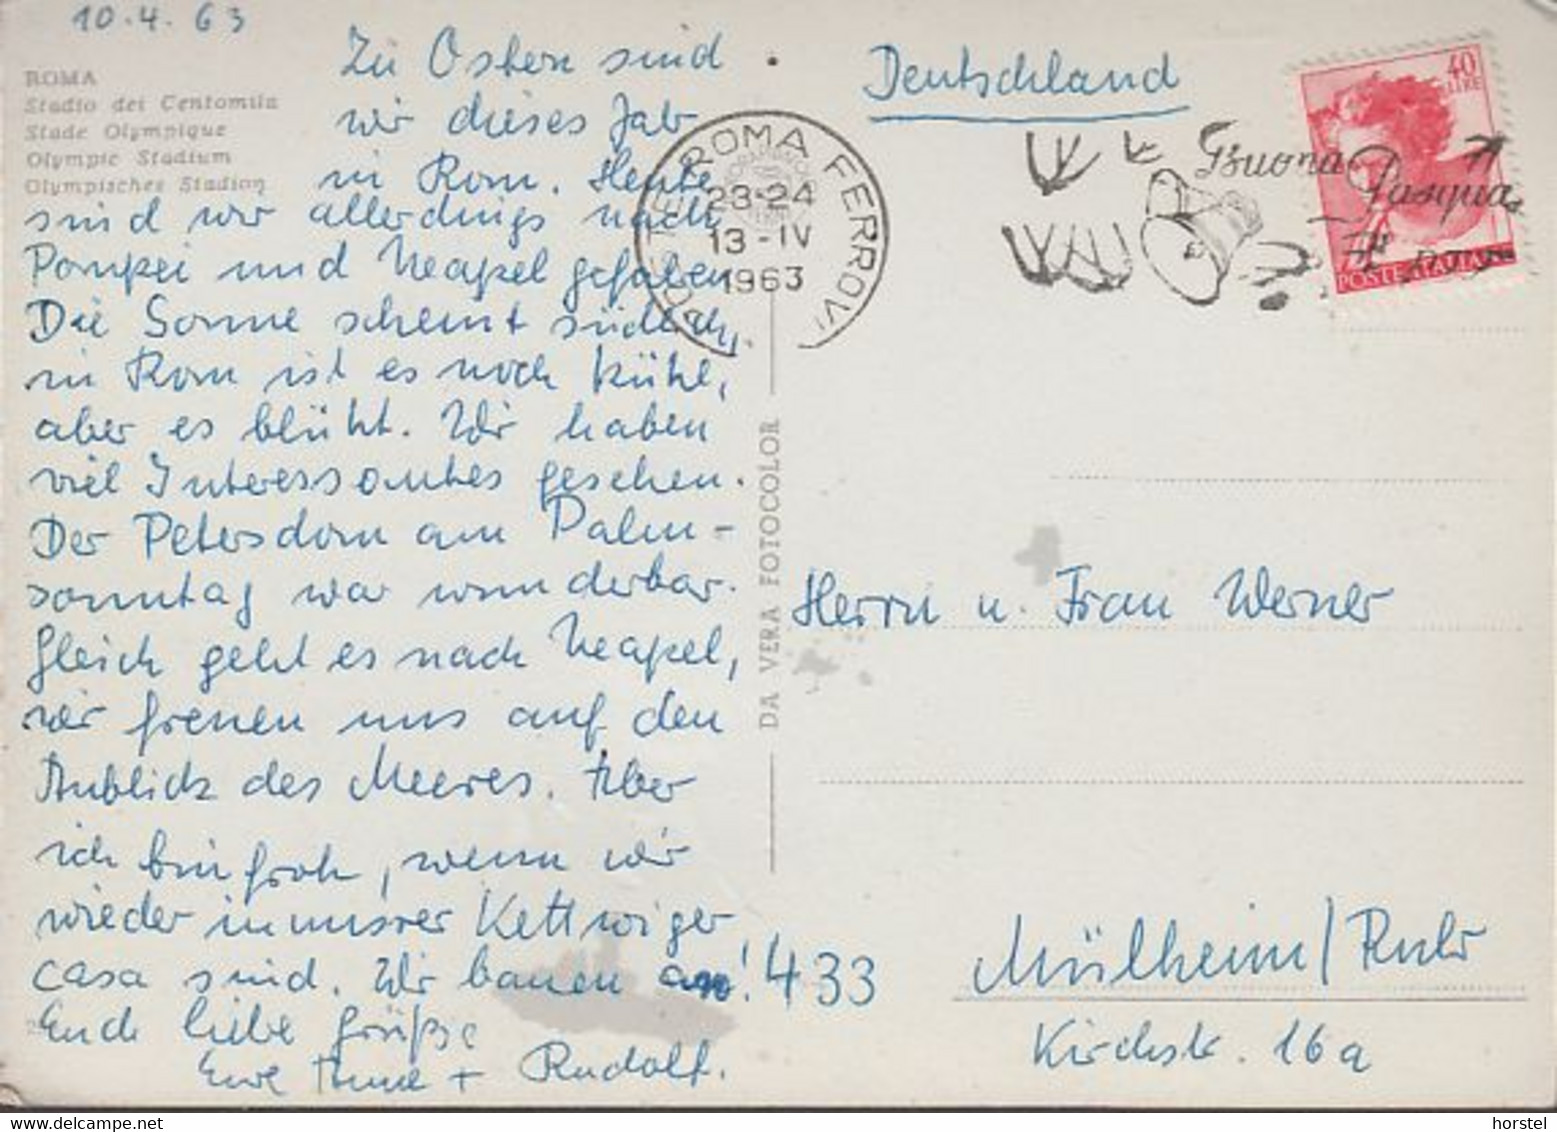 10.4.63
ROMA
Stadio dei Centomila
Stade Olympique
Olympic Stadium
Olympisches Stadion
Zu Ostern sind
wir dieses Jahr
in Rom. Heute
sind wir allerdings nach
Pompei und Neapel gefahren
Die Sonne scheint südlich,
in Rom ist es noch kühl,
aber es blüht. Wir haben
viel Interessantes gesehen.
Der Petersdom am Palm-
sonntag war wunderbar.
Gleich geht es nach Neapel,
wir freuen uns auf den
Anblick des Meeres. Aber
ich bin froh, wenn wir
wieder in unsrer Kettwiger
casa sind. Wir bauen an!
Euch liebe Grüße
Eure + Rudolf.
DA VERA FOTOCOLOR
Deutschland
ROMA FERROVIA
23-24
13-IV
1963
Buona Pasqua
40
LIRE
POSTE ITALIANE
Herrn u. Frau Werner
433 Mülheim/Ruhr
Kirchstr. 16a
horstel